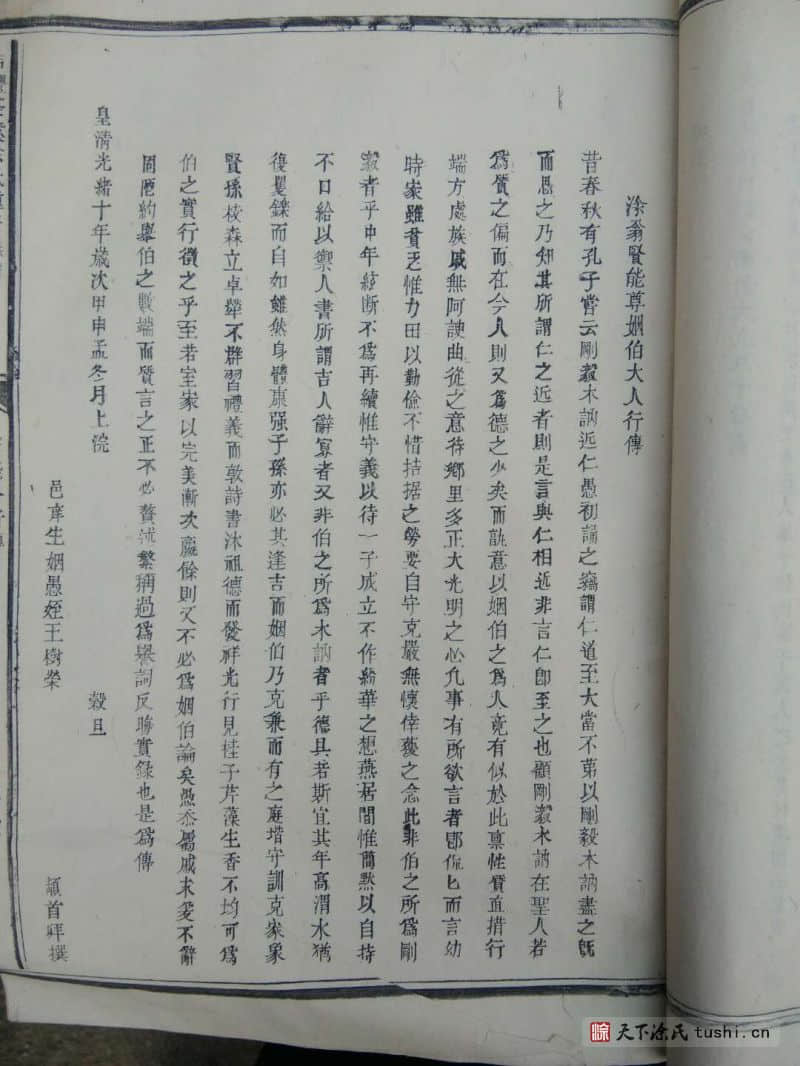 涂翁賢能尊姻伯大人行傳
昔春秋有孔子嘗云剛毅木訥近仁愚初論之竊謂仁道至大當不第以剛毅木訥盡之旣
而思之乃知其所謂仁之近者則是言與仁相近非言仁卽至之也顧剛毅木訥在聖人若
爲質之偏而在今人則又爲德之少矣而詎意以姻伯之爲人竟有似於此稟性質直措行
端方處族戚無阿諛曲從之意待鄉里多正大光明之心凡事有所欲言者卽侃匕而言幼
時家雖貧乏惟力田以勤儉不惜拮据之勞要自守克嚴無懷倖獲之念此非伯之所爲剛
毅者乎中年絃斷不爲再續惟守義以待一子成立不作紛華之想燕居間惟簡默以自持
不口給以禦人書所謂吉人辭寡者又非伯之所爲木訥者乎德具若斯宜其年高渭水猶
復矍鑠而自如雖然身體康强子孫亦必其逢吉而姻伯乃克兼而有之庭堦守訓克家象
賢孫枝森立卓犖不群習禮義而敦詩書沐祖德而發祥光行見桂子芹藻生香不均可爲
伯之實行徵之乎至若室家以完美漸次慶餘則又不必爲姻伯論矣愚忝屬戚末爰不辭
固陋約舉伯之數端而質言之正不必贅述繁稱過爲譽詞反睎實錄也是爲傳
皇清光緒十年歲次甲申孟冬月上浣
穀旦
邑庠生姻愚姪王樹榮
頓首拜撰
涂 天下涂氏 tushi.cn